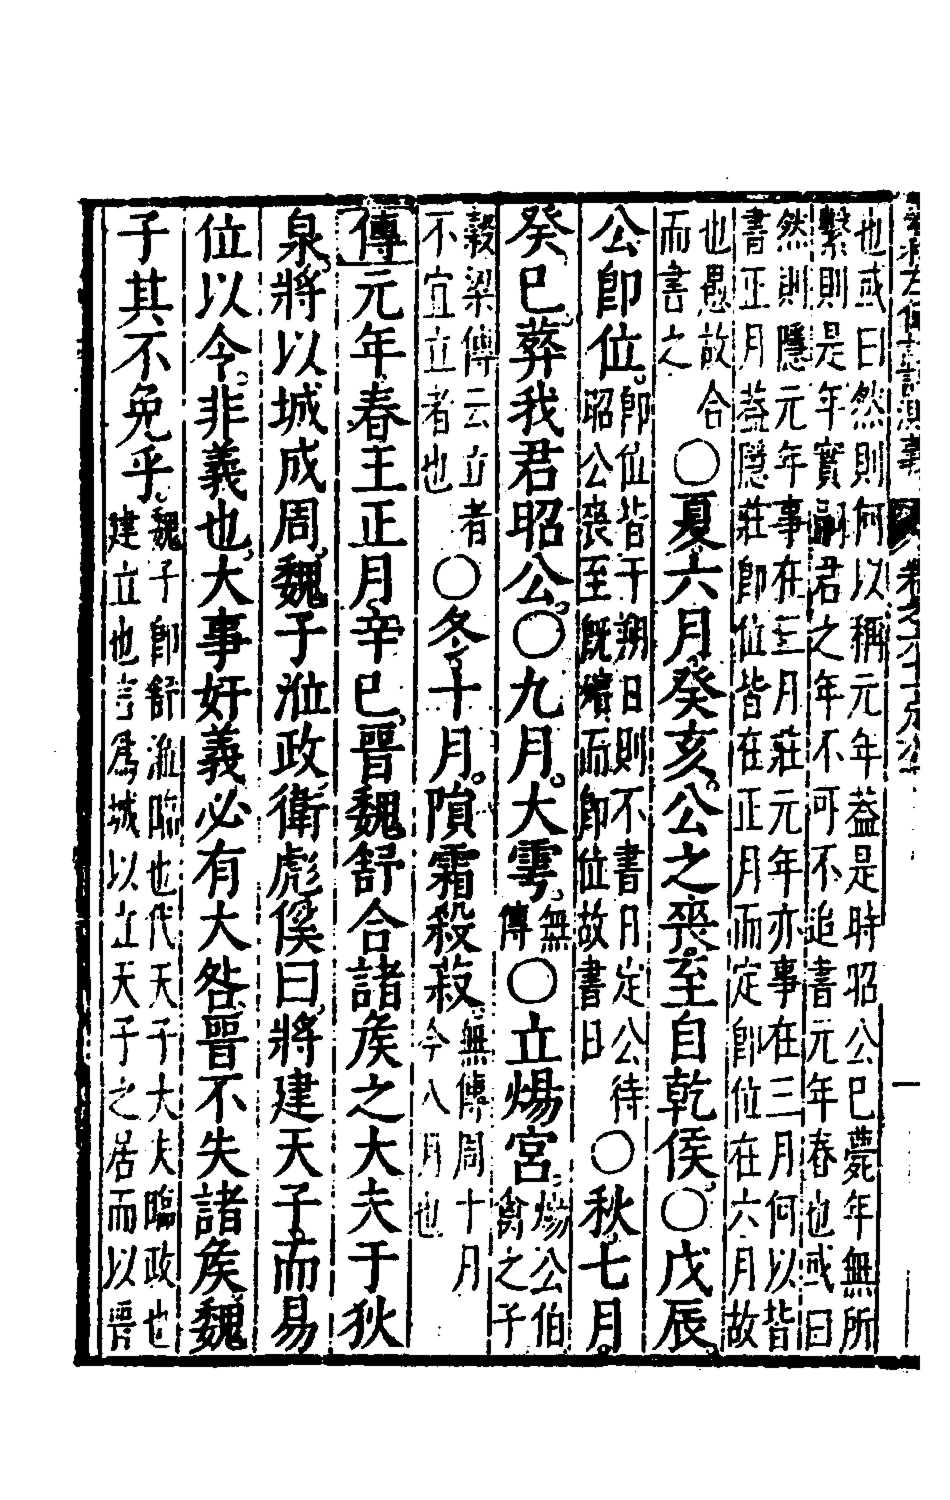 春秋左傳註評測義 卷之六十一定公 一
也或曰然則何以稱元年葢是時昭公已薨年無所
繫則是年實嗣君之年不可不追書元年春也或曰
然則隱元年事在三月莊元年亦事在三月何以皆
書正月葢隱莊卽位皆在正月而定卽位在六月故
也愚故合
而書之
○夏六月癸亥。公之喪。至自乾侯。○戊辰。
公卽位。
卽位皆于朔日則不書日定公待
昭公喪至既殯而卽位故書日
○秋。七月。
癸巳。葬我君昭公。○九月。大雩。
無
傳
○立煬宮。
煬公伯
禽之子
穀梁傳云立者
不宜立者也
○冬。十月。隕霜殺菽。
無傳周十月
今八月也
傳元年春王正月。辛巳。晉魏舒合諸矦之大夫于狄
泉。將以城成周。魏子涖政。衛彪傒曰。將建天子。而易
位以令。非義也。大事奸義。必有大咎。晉不失諸矦。魏
子其不免乎。
魏子卽舒涖臨也代天子大夫臨政也
建立也言爲城以立天子之居而以晉